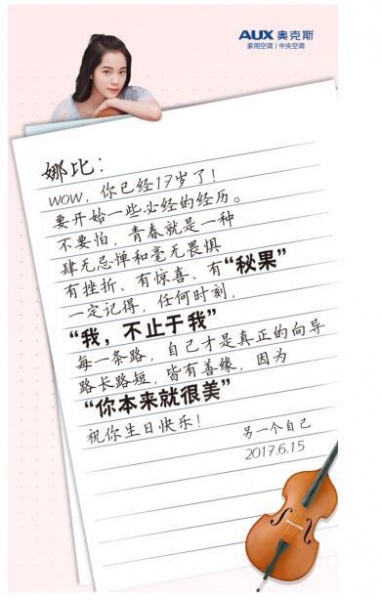 AUX 奥克斯
家用空调 | 中央空调
娜比：
wow，你已经17岁了！
要开始一些必经的经历。
不要怕，青春就是一种
肆无忌惮和毫无畏惧
有挫折、有惊喜、有“秋果”
一定记得，任何时刻，
“我，不止于我”
每一条路，自己才是真正的向导
路长路短，皆有善缘，因为
“你本来就很美”
祝你生日快乐！
另一个自己
2017.6.15